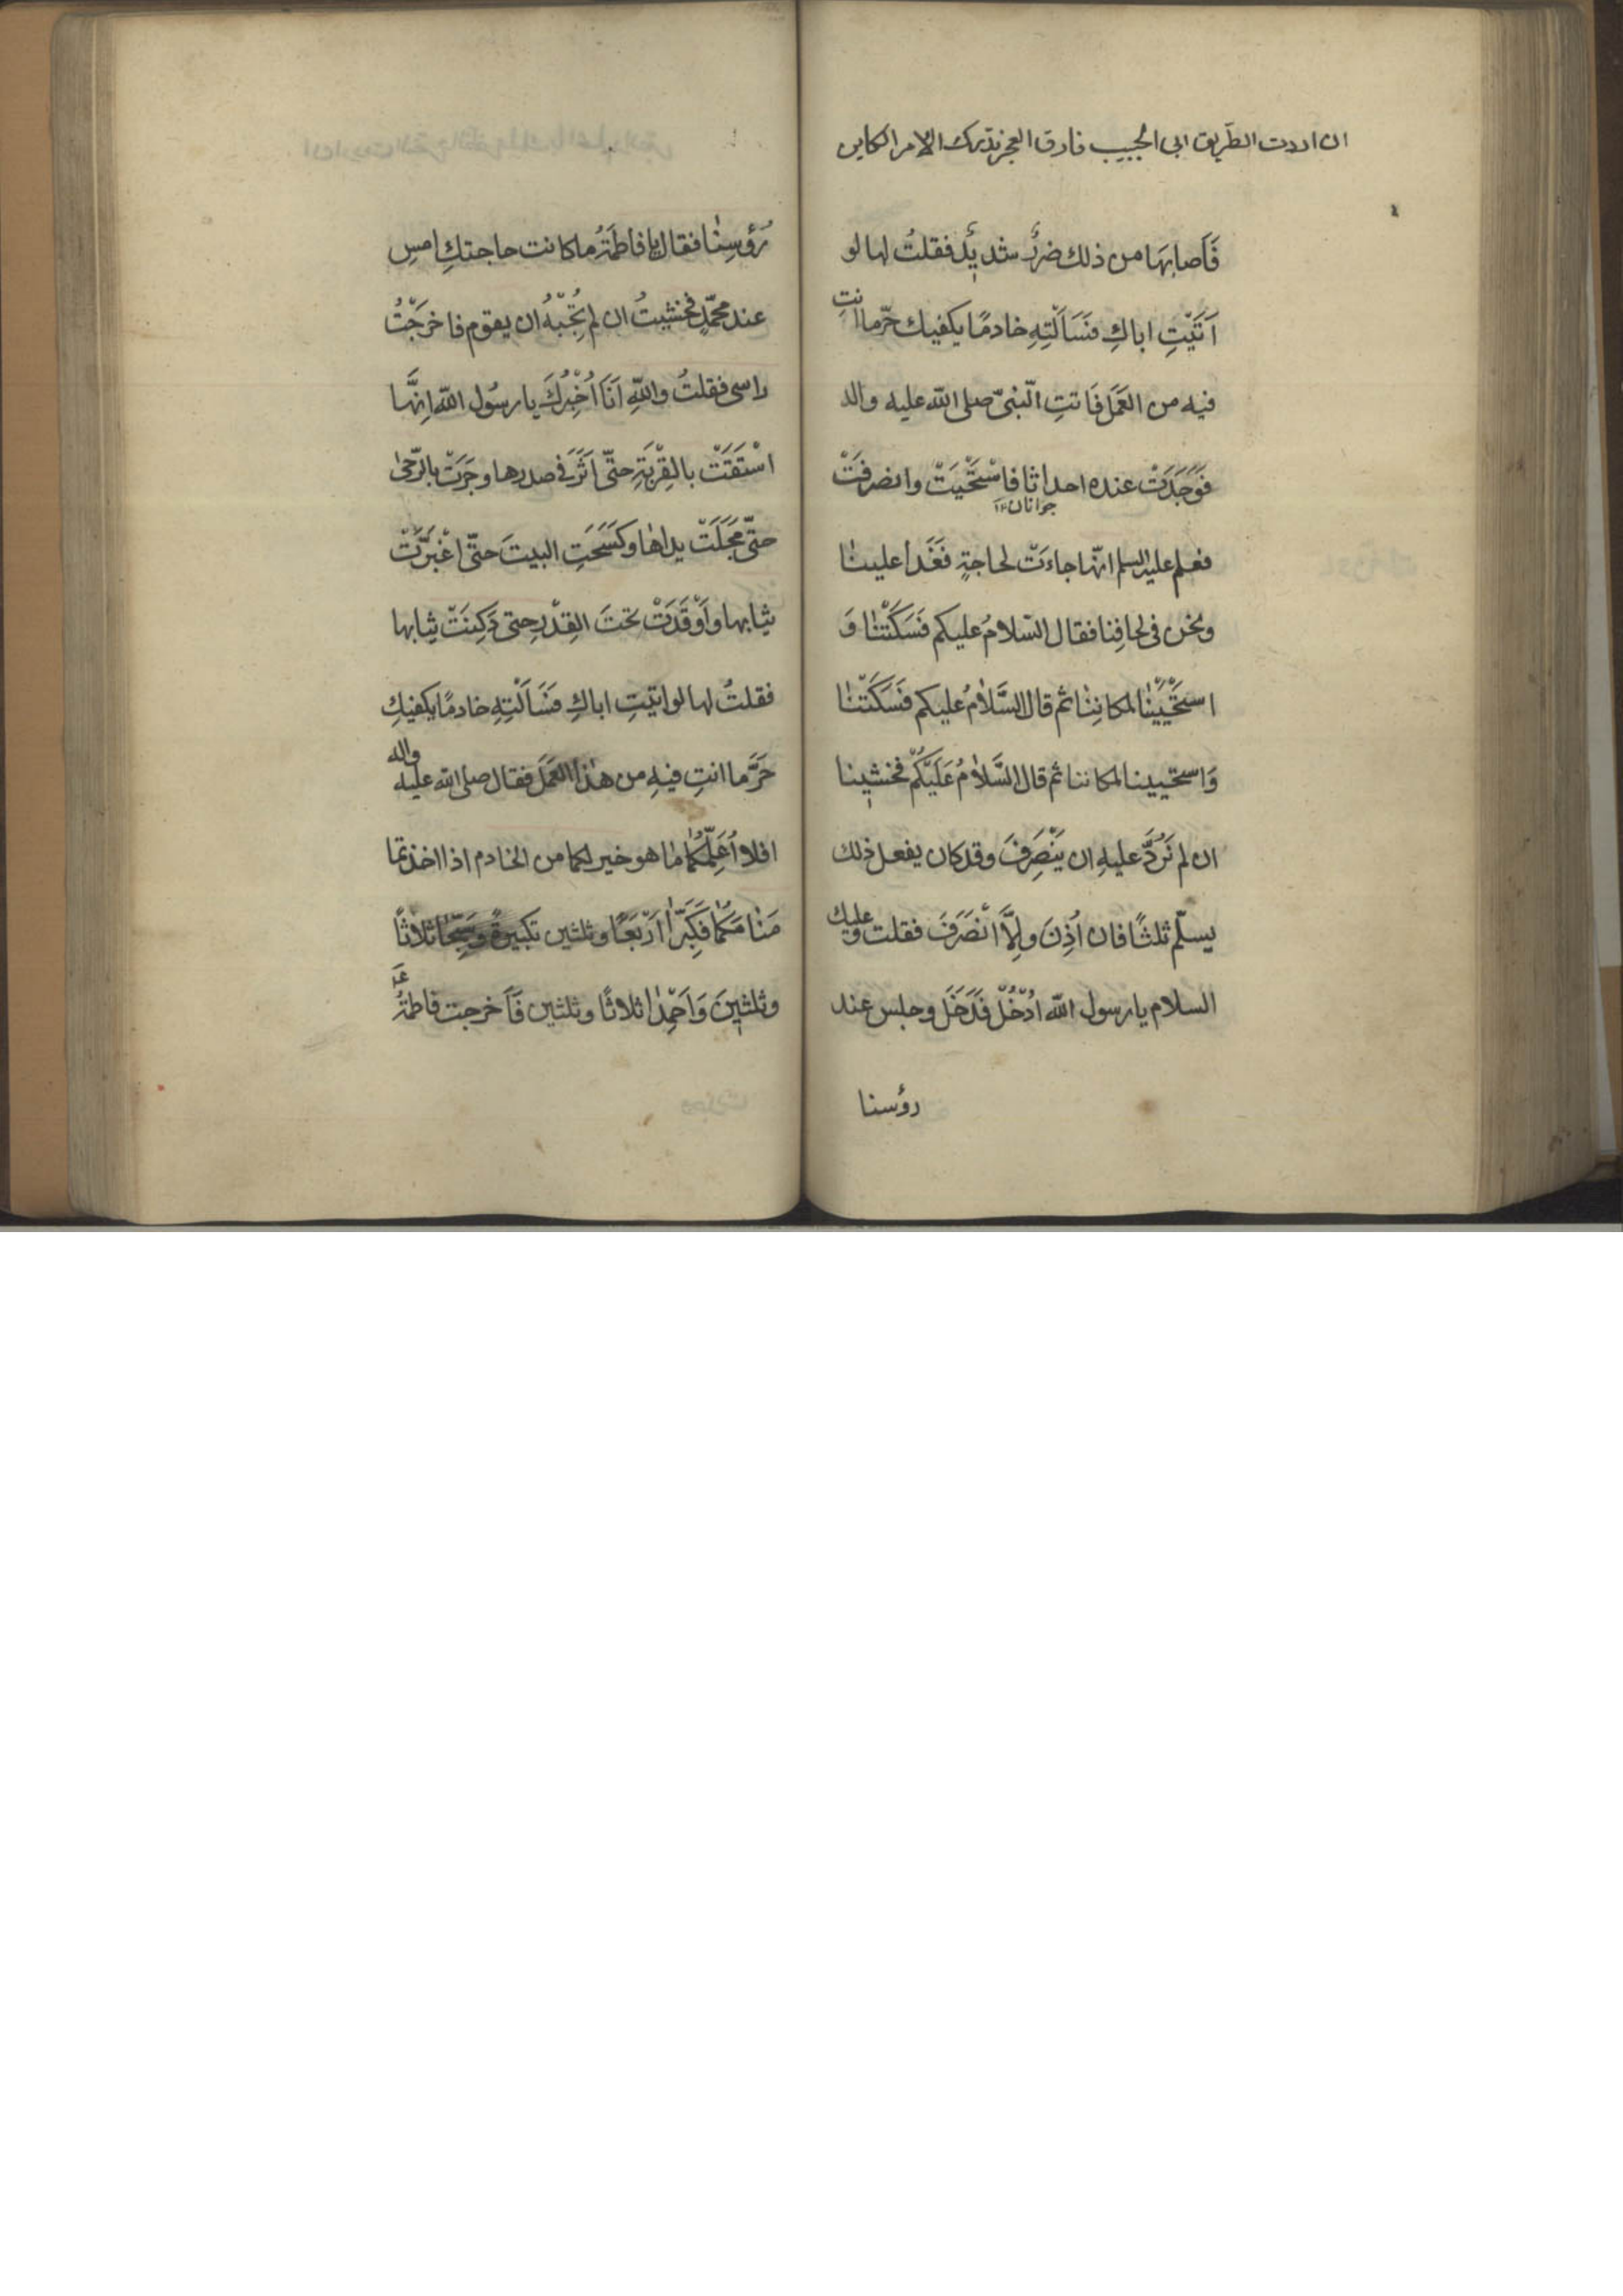 ان اردت الطّريق الى الحبيب فارق العجز تدرك الامر الكاين
فَاَصابَهَا من ذلك ضررٌ شديدٌ فقلتُ لها لو
اَتَيْتِ اباكِ فَسَاَلْتِهِ خادمًا يكفيك حَرّ ما انتِ
فيه من العَمَل فَاَتتِ النّبىّ صلى الله عليه واله
فَوَجَدَتْ عنده احداثا فَاسْتَحْيَتْ وانصرفَتْ
جوانان
فعلم عليه السلم انّها جاءَتْ لحاجةٍ فَغَدا علينا
ونحن فى لحافِنا فقال السّلامُ عليكم فَسَكَتْنا وَ
اسْتَحْيَيْنا لمكانِنا ثم قال السَّلامُ عليكم فَسَكَتْنا
وَاستحيينا لمكاننا ثم قال السَّلامُ عَلَيْكُمْ فخشينا
ان لم نَرُدَّ عليهِ ان يَنْصَرِفَ وقد كان يفعل ذلك
يسلّم ثلثًا فان اُذِنَ والاَّ انْصَرَفَ فقلت وعليك
السلام يا رسول الله اُدْخُلْ فَدَخَلَ وجلس عند
رؤسنا
رُؤسِنا فقال يا فاطمَةُ ما كانت حاجتكِ امسِ
عند محمّدٍ فخشيتُ ان لم نُجِبْهُ ان يقوم فاخرَجْتُ
راسى فقلتُ واللهِ اَنَا اُخْبِرُكَ يا رسُول الله اِنَّها
اسْتَقَتْ بالقِرْبَةِ حتّى اَثَّرَ فى صدرها وجَرَتْ بالرّحىٰ
حتّى مَجَلَتْ يداها وكَسَحَتِ البيتَ حتّى اغْبَرَّتْ
ثيابها واَوْقَدَتْ تحتَ القِدْرِ حتى دَكِنَتْ ثيابها
فقلتُ لها لو اتيتِ اباكِ فَسَاَلْتِهِ خادمًا يكفيكِ
حَرَّ ما انتِ فيهِ من هٰذا العَمَلَ فقال صلى الله عليه واله
افلا اُعَلِّمُكُما ما هو خير لكما من الخادم اذا اخذتما
مَنامَكُما فَكَبِّرا اَرْبَعًا وثلثين تكبيرةً وسَبِّحا ثلاثًا
وثلثينَ وَاَحْمِدا ثلاثًا وثلثين فَاَخرجت فاطمةُ